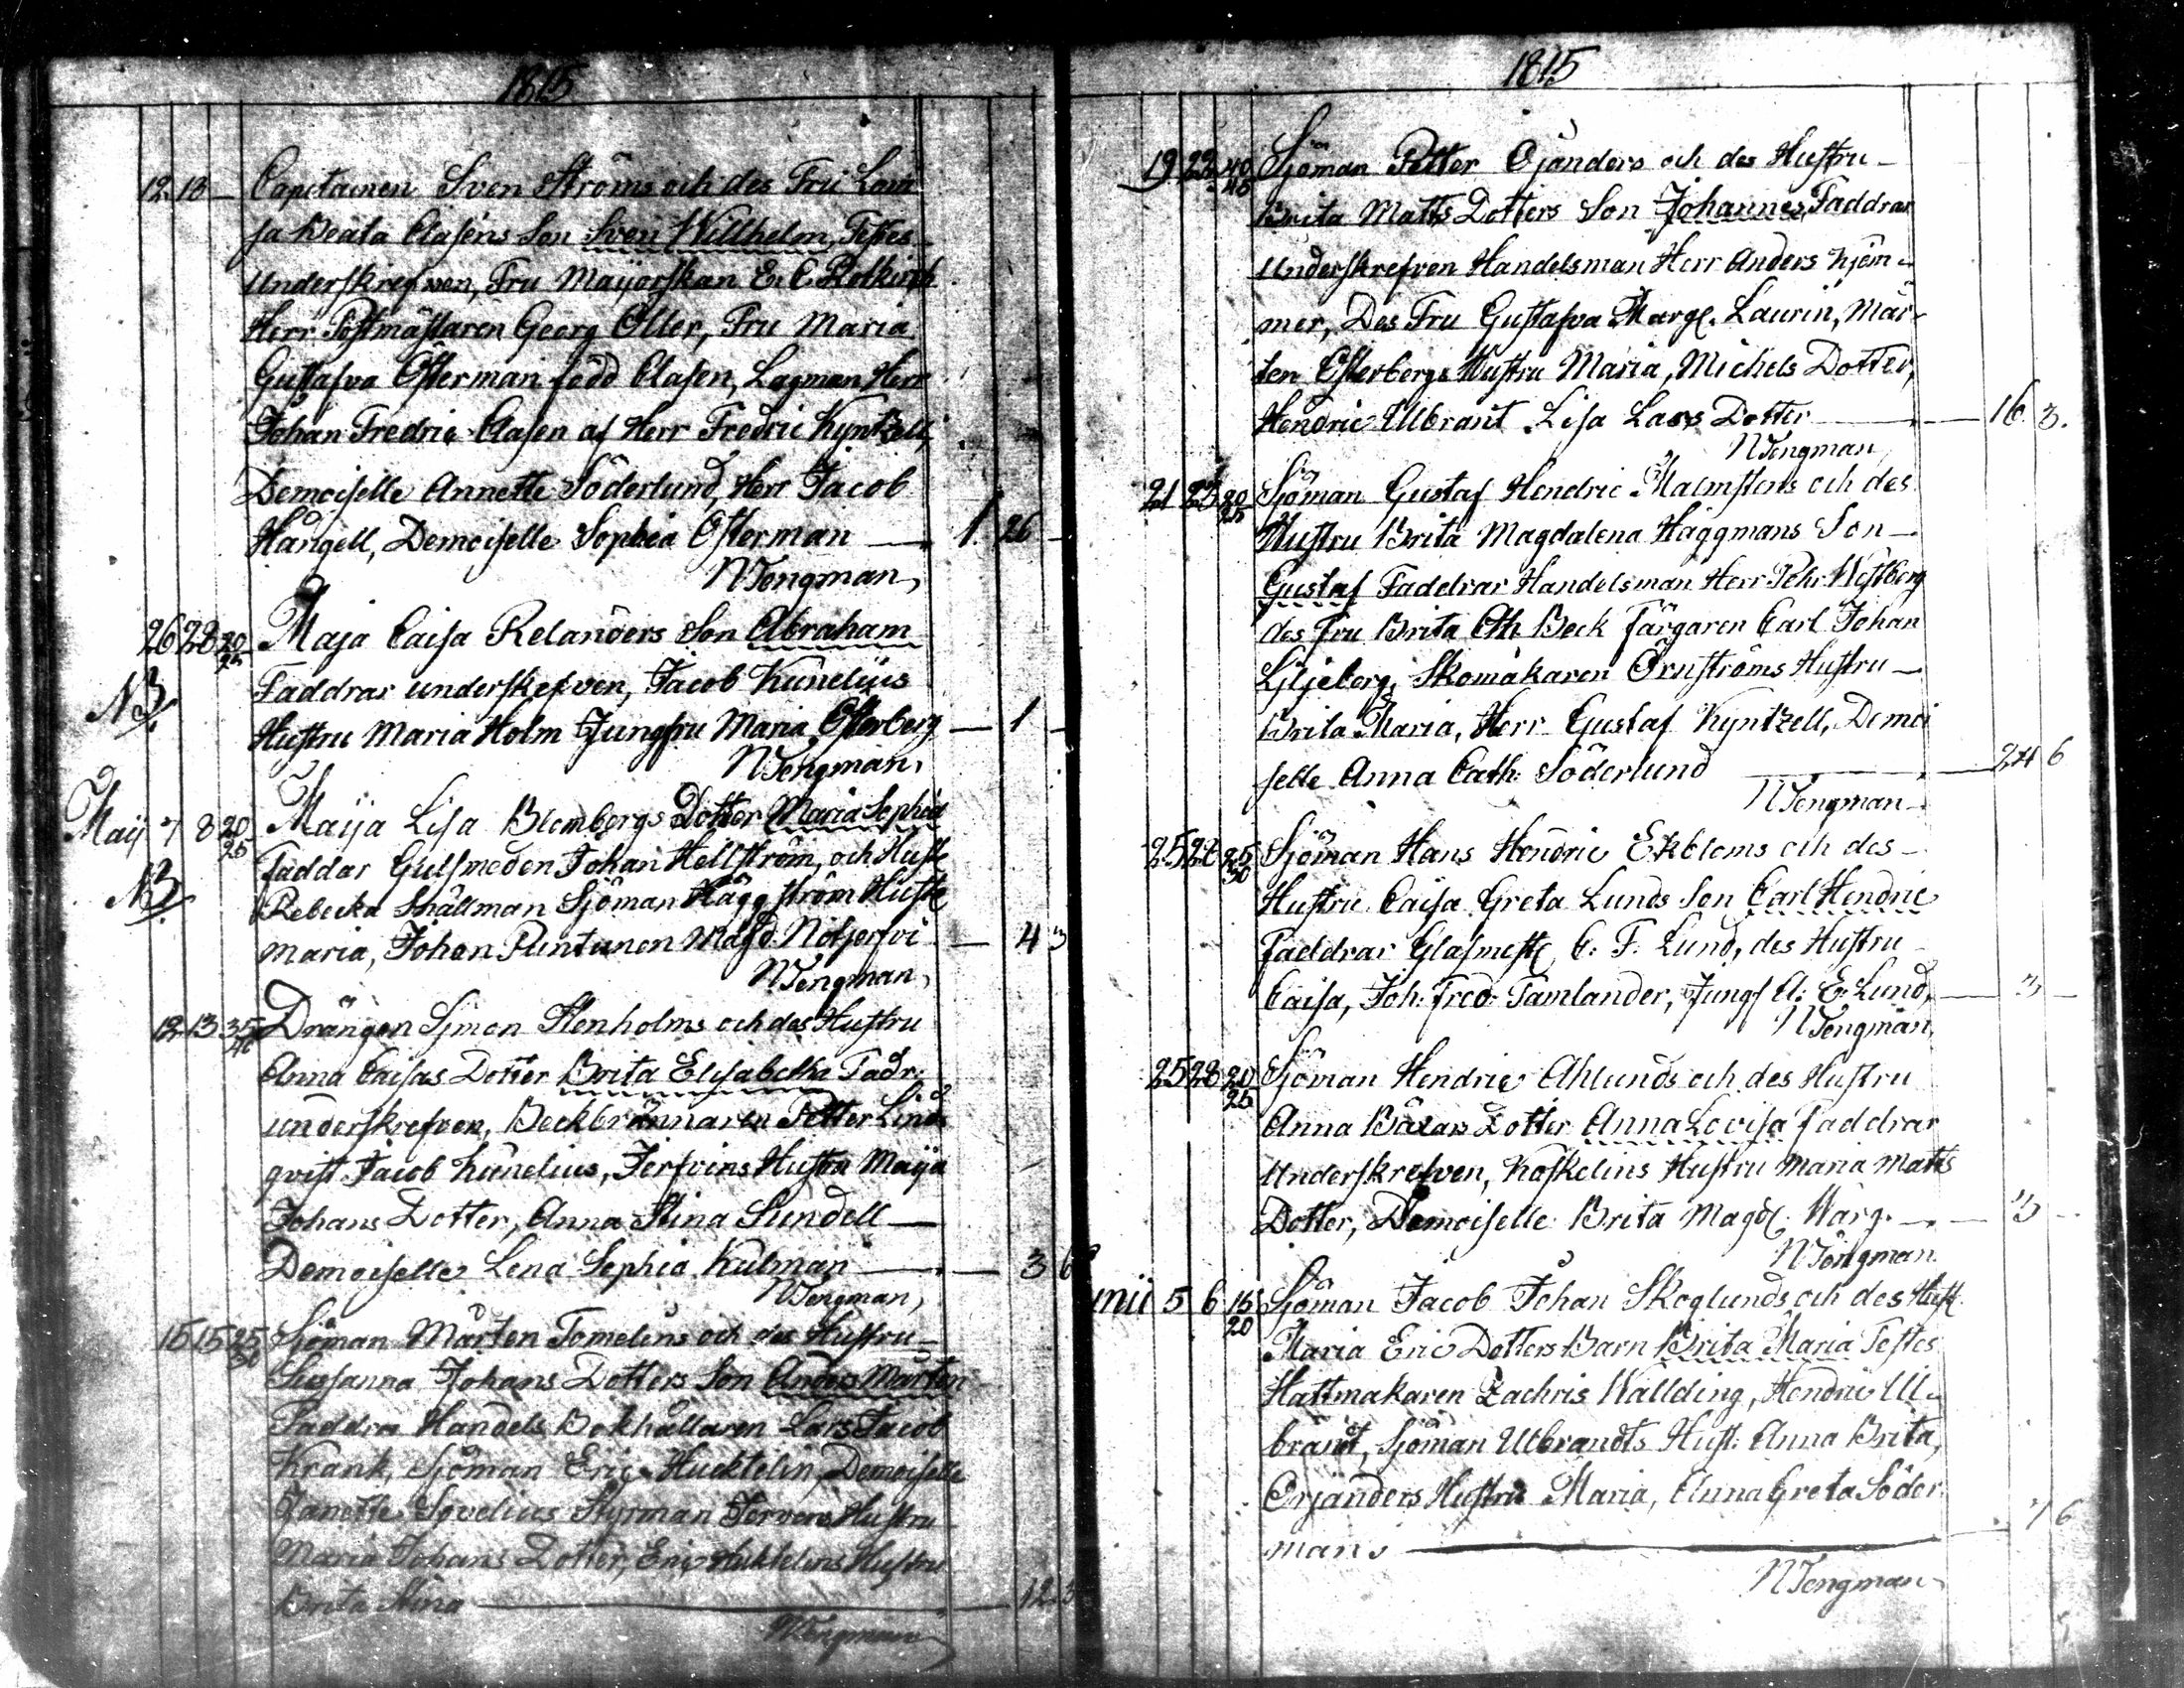 1815
12 13 — Capitainen Sven Ströms och des Fru Lovi
sa Beata Clasens Son Sven Willhelm, Testes
Underskrefwen, Fru Maijorskan E. C. Rotkirch
Herr Postmästaren Georg Öller, Fru Maria
Gustafva Österman född Clasen, Lagman Herr
Johan Fredric Clasen af Herr Fredric Kyntzell,
Demoiselle Annette Söderlund, Herr Jacob
Hangell, Demoiselle Sophia Österman — 1. 26 —
N Tengman
26 28 20/25 Maja Caisa Relanders Son Abraham
NB Faddrar underskrefven, Jacob Kunelius
Hustru Maria Holm Jungfru Maria Österberg — 1 —
N Tengman
Maij 7 8 20/25 Maija Lisa Blombergs Dotter Maria Sophia
NB. Faddar Gulsmeden Johan Hellström, och Hust
Rebecka Snällman Sjöman Häggström Hust
Maria, Johan Puntunen Magd. — 4 3
N Tengman
12 13 35/40 Drängen Simon Stenholms och des Hustru
Anna Caisas Dotter Brita Elisabetha Fadr.
underskrefven, Beckbrännaren Petter Lind
qvist Jacob Kunelius, Jerfvins Hustru Maija
Johans Dotter, Anna Stina Sundell —
Demoiselle Lena Sophia Kulman — 3 6
N Tengman
15 15 25/30 Sjöman Mårten Tomelins och des Hustru
Susanna Johans Dotters Son Anders Mårten
Faddra Handels Bokhållaren Lars Jacob
Krank, Sjöman Eric Hucktelin, Demoiselle
Janette Sovelius Styrman Jervens Hustru
Maria Johans Dotter, Eric Hucktelins Hustru
Brita Stina — 12 3
N Tengman
1815
19 22 40/45 Sjöman Petter Öjanders och des Hustru
Brita Matts Dotters Son Johannes, Faddrar
Underskrefven Handelsman Herr Anders Kjöm-
mer, Des Fru Gustafva Marg. Laurin, Mår-
ten Österbergs Hustru Maria, Michels Dotter,
Hendric Ulbrant Lisa Lars Dotter — 16. 3.
N Tengman
21 23 20/25 Sjöman Gustaf Hendric Malmstens och des
Hustru Brita Magdalena Häggmans Son —
Gustaf Faddrar Handelsman Herr Pehr Westberg
des Fru Brita Cth Beck Färgaren Carl Johan
Liljeberg, Skomakaren Örnströms Hustru —
Brita Maria, Herr Gustaf Kyntzell, Demoi
selle Anna Cath: Söderlund — 24 6
N Tengman
25 28 25/30 Sjöman Hans Hendric Ekbloms och des —
Hustru Caisa Greta Lunds Son Carl Hendric
Faddrar Glasmest C. F. Lund, des Hustru
Caisa, Joh: Fred: Tamlander, Jungf A: E: Lund, — 3 —
N Tengman
25 28 20/25 Sjöman Hendric Ahlunds och des Hustru
Anna Dotter Anna Lovisa Faddrar
Underskrefven, Koskelins Hustru Maria Matts
Dotter, Demoiselle Brita Magd. Warg. — 3 —
N Tengman
nii 5 6 15/20 Sjöman Jacob Johan Skoglunds och des Hust
Maria Eric Dotters Barn Brita Maria Testes
Hattmakaren Zachris Wallding, Hendric Ul-
brandt, Sjöman Ulbrandts Hust: Anna Brita,
Örjanders Hustru Maria, Anna Greta Söder
man. — 7 6
N Tengman